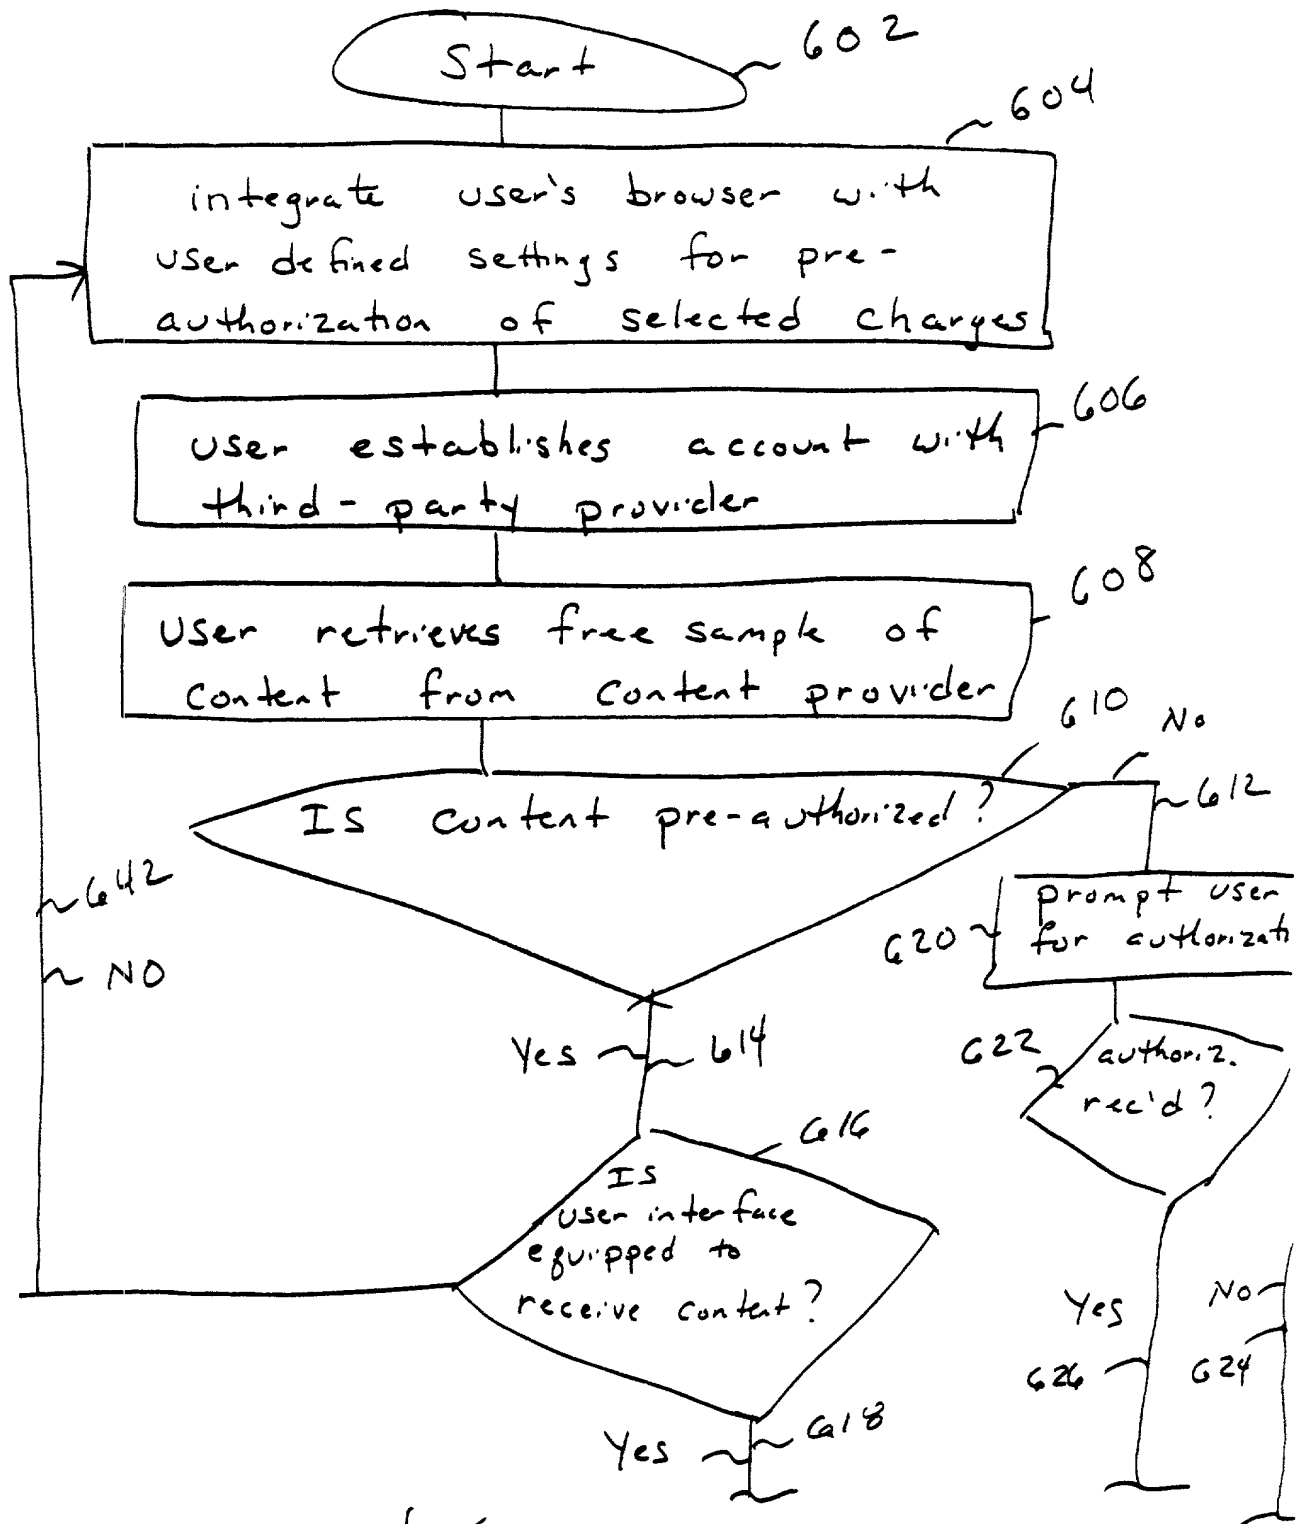 Start
602
604
integrate user's browser with
user defined settings for pre-
authorization of selected charges
606
user establishes account with
third-party provider
608
User retrieves free sample of
content from content provider
610
No
612
Is content pre-authorized?
642
NO
prompt user
620
for authorizati
Yes
614
622
authoriz.
rec'd?
616
Is
user interface
equipped to
receive content?
Yes
No
626
624
Yes
618